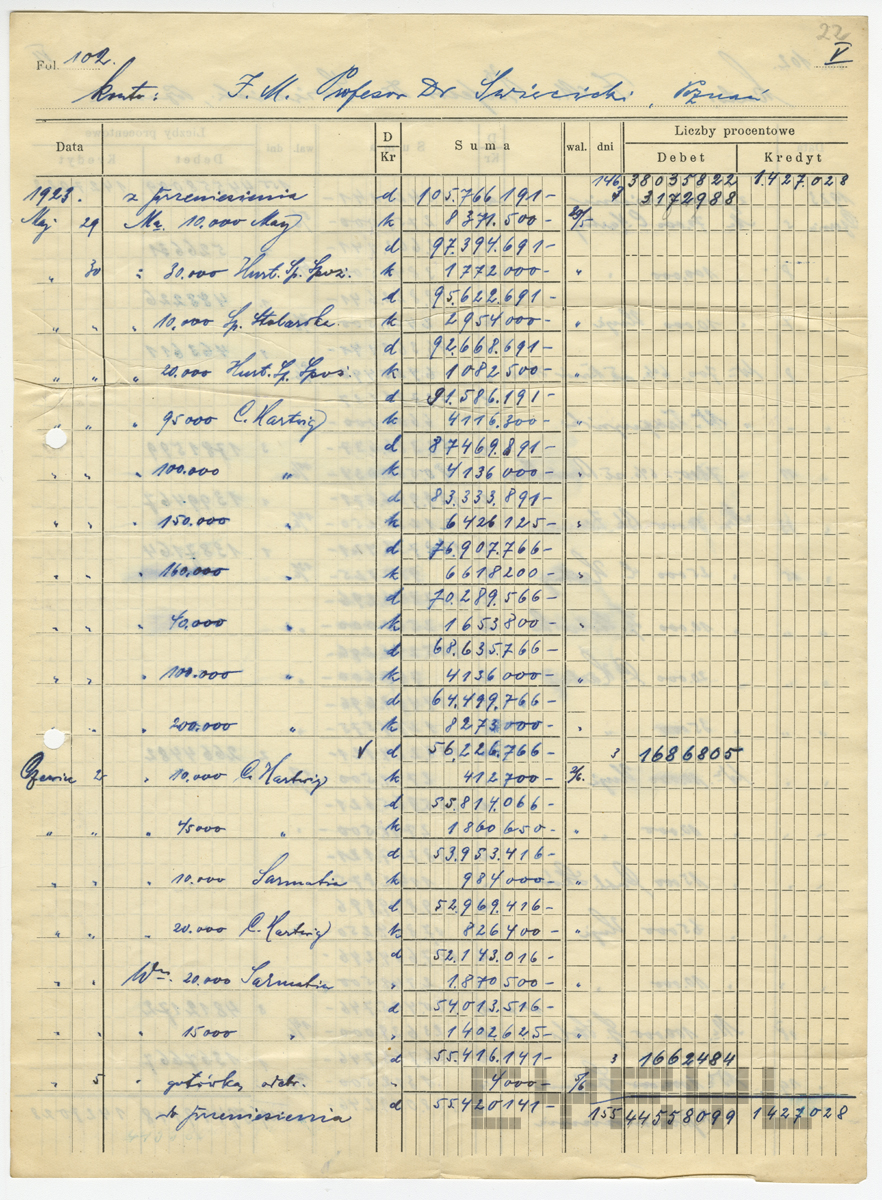 22
Fol. 102. V
Konto: J. M. Profesor Dr Święcicki, Poznań
Data D Kr Suma wal. dni Liczby procentowe
Debet Kredyt
146 38035822 1.427.028
1923. z Przeniesienia d 105.766.191- 3 3172988
Maj 29 Ma. 10.000 May k 8371.500- 29/5
d 97.394.691-
„ 30 „ 30.000 Hurt. Sp. Spoż. k 1772000- „
d 95.622.691-
„ „ „ 10.000 Sp. Stolarska k 2954000- „
d 92.668.691-
„ „ „ 20.000 Hurt. Sp. Spoż. k 1082500- „
d 91.586.191-
„ „ „ 95000 C. Hartwig k 4116.300- „
d 87469.891-
„ „ „ 100.000 „ k 4136000- „
d 83.333.891-
„ „ „ 150.000 „ k 6426125- „
d 76.907.766-
„ „ „ 160.000 „ k 6618200- „
d 70.289.566-
„ „ „ 40.000 „ k 1653800- „
d 68.635.766-
„ „ „ 100.000 „ k 4136000- „
d 64.499.766-
„ „ 200.000 „ k 8273000- „
√ d 56.226.766- 3 1686805
Czerwiec 2 „ 10.000 C. Hartwig k 412700- 2/6.
d 55.814.066-
„ „ „ 45000 „ k 1860650- „
d 53.953.416-
„ „ „ 10.000 Sarmatia k 984000- „
d 52.969.416-
„ „ „ 20.000 C. Hartwig k 826400- „
d 52.143.016-
„ „ Wn. 20.000 Sarmatia „ 1.870500- „
d 54.013.516-
„ „ „ 15000 „ „ 1402625- „
d 55.416.141- 3 1662484
„ 5 „ gotówką odebr. „ 4000- 5/6
do Przeniesienia d 55.420141- 155 44558099 1427028